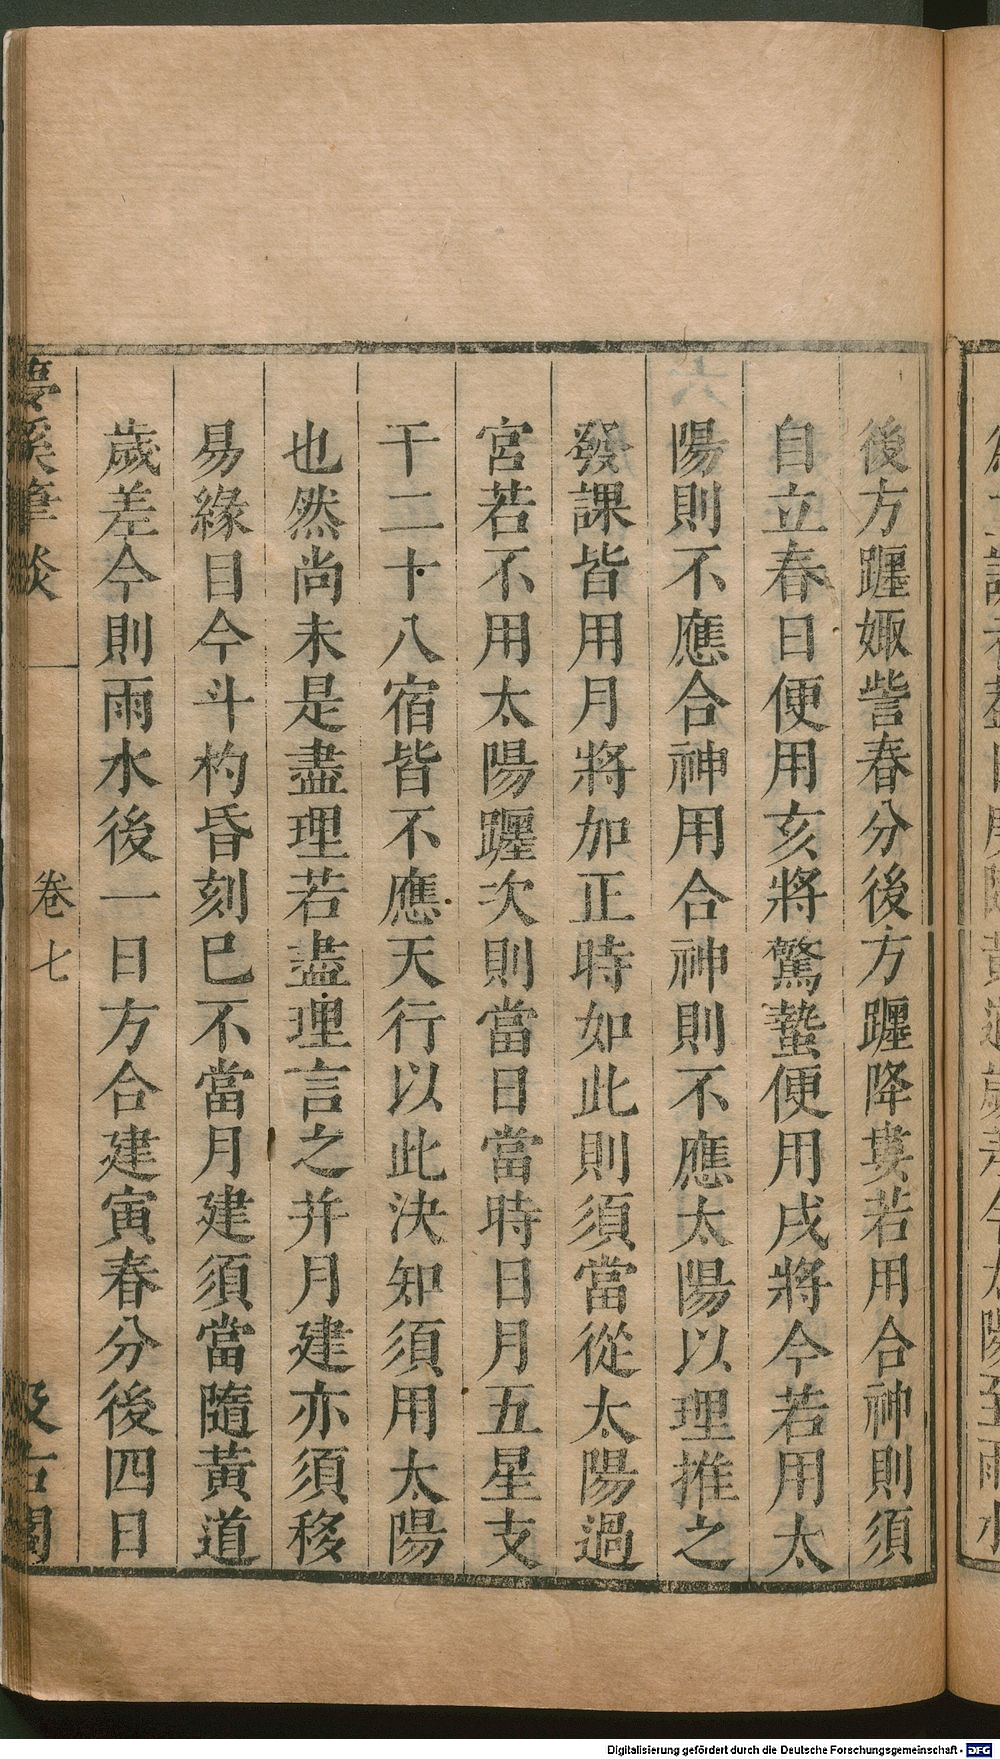 後方躔娵訾春分後方躔降婁若用合神則須
自立春日便用亥將驚蟄便用戌將今若用太
陽則不應合神用合神則不應太陽以理推之
發課皆用月將加正時如此則須當從太陽過
宮若不用太陽躔次則當日當時日月五星支
干二十八宿皆不應天行以此決知須用太陽
也然尚未是盡理若盡理言之并月建亦須移
易緣目今斗杓昏刻巳不當月建須當隨黃道
歲差今則雨水後一日方合建寅春分後四日
夢溪筆談
卷七
汲古閣
Digitalisierung gefördert durch die Deutsche Forschungsgemeinschaft - DFG